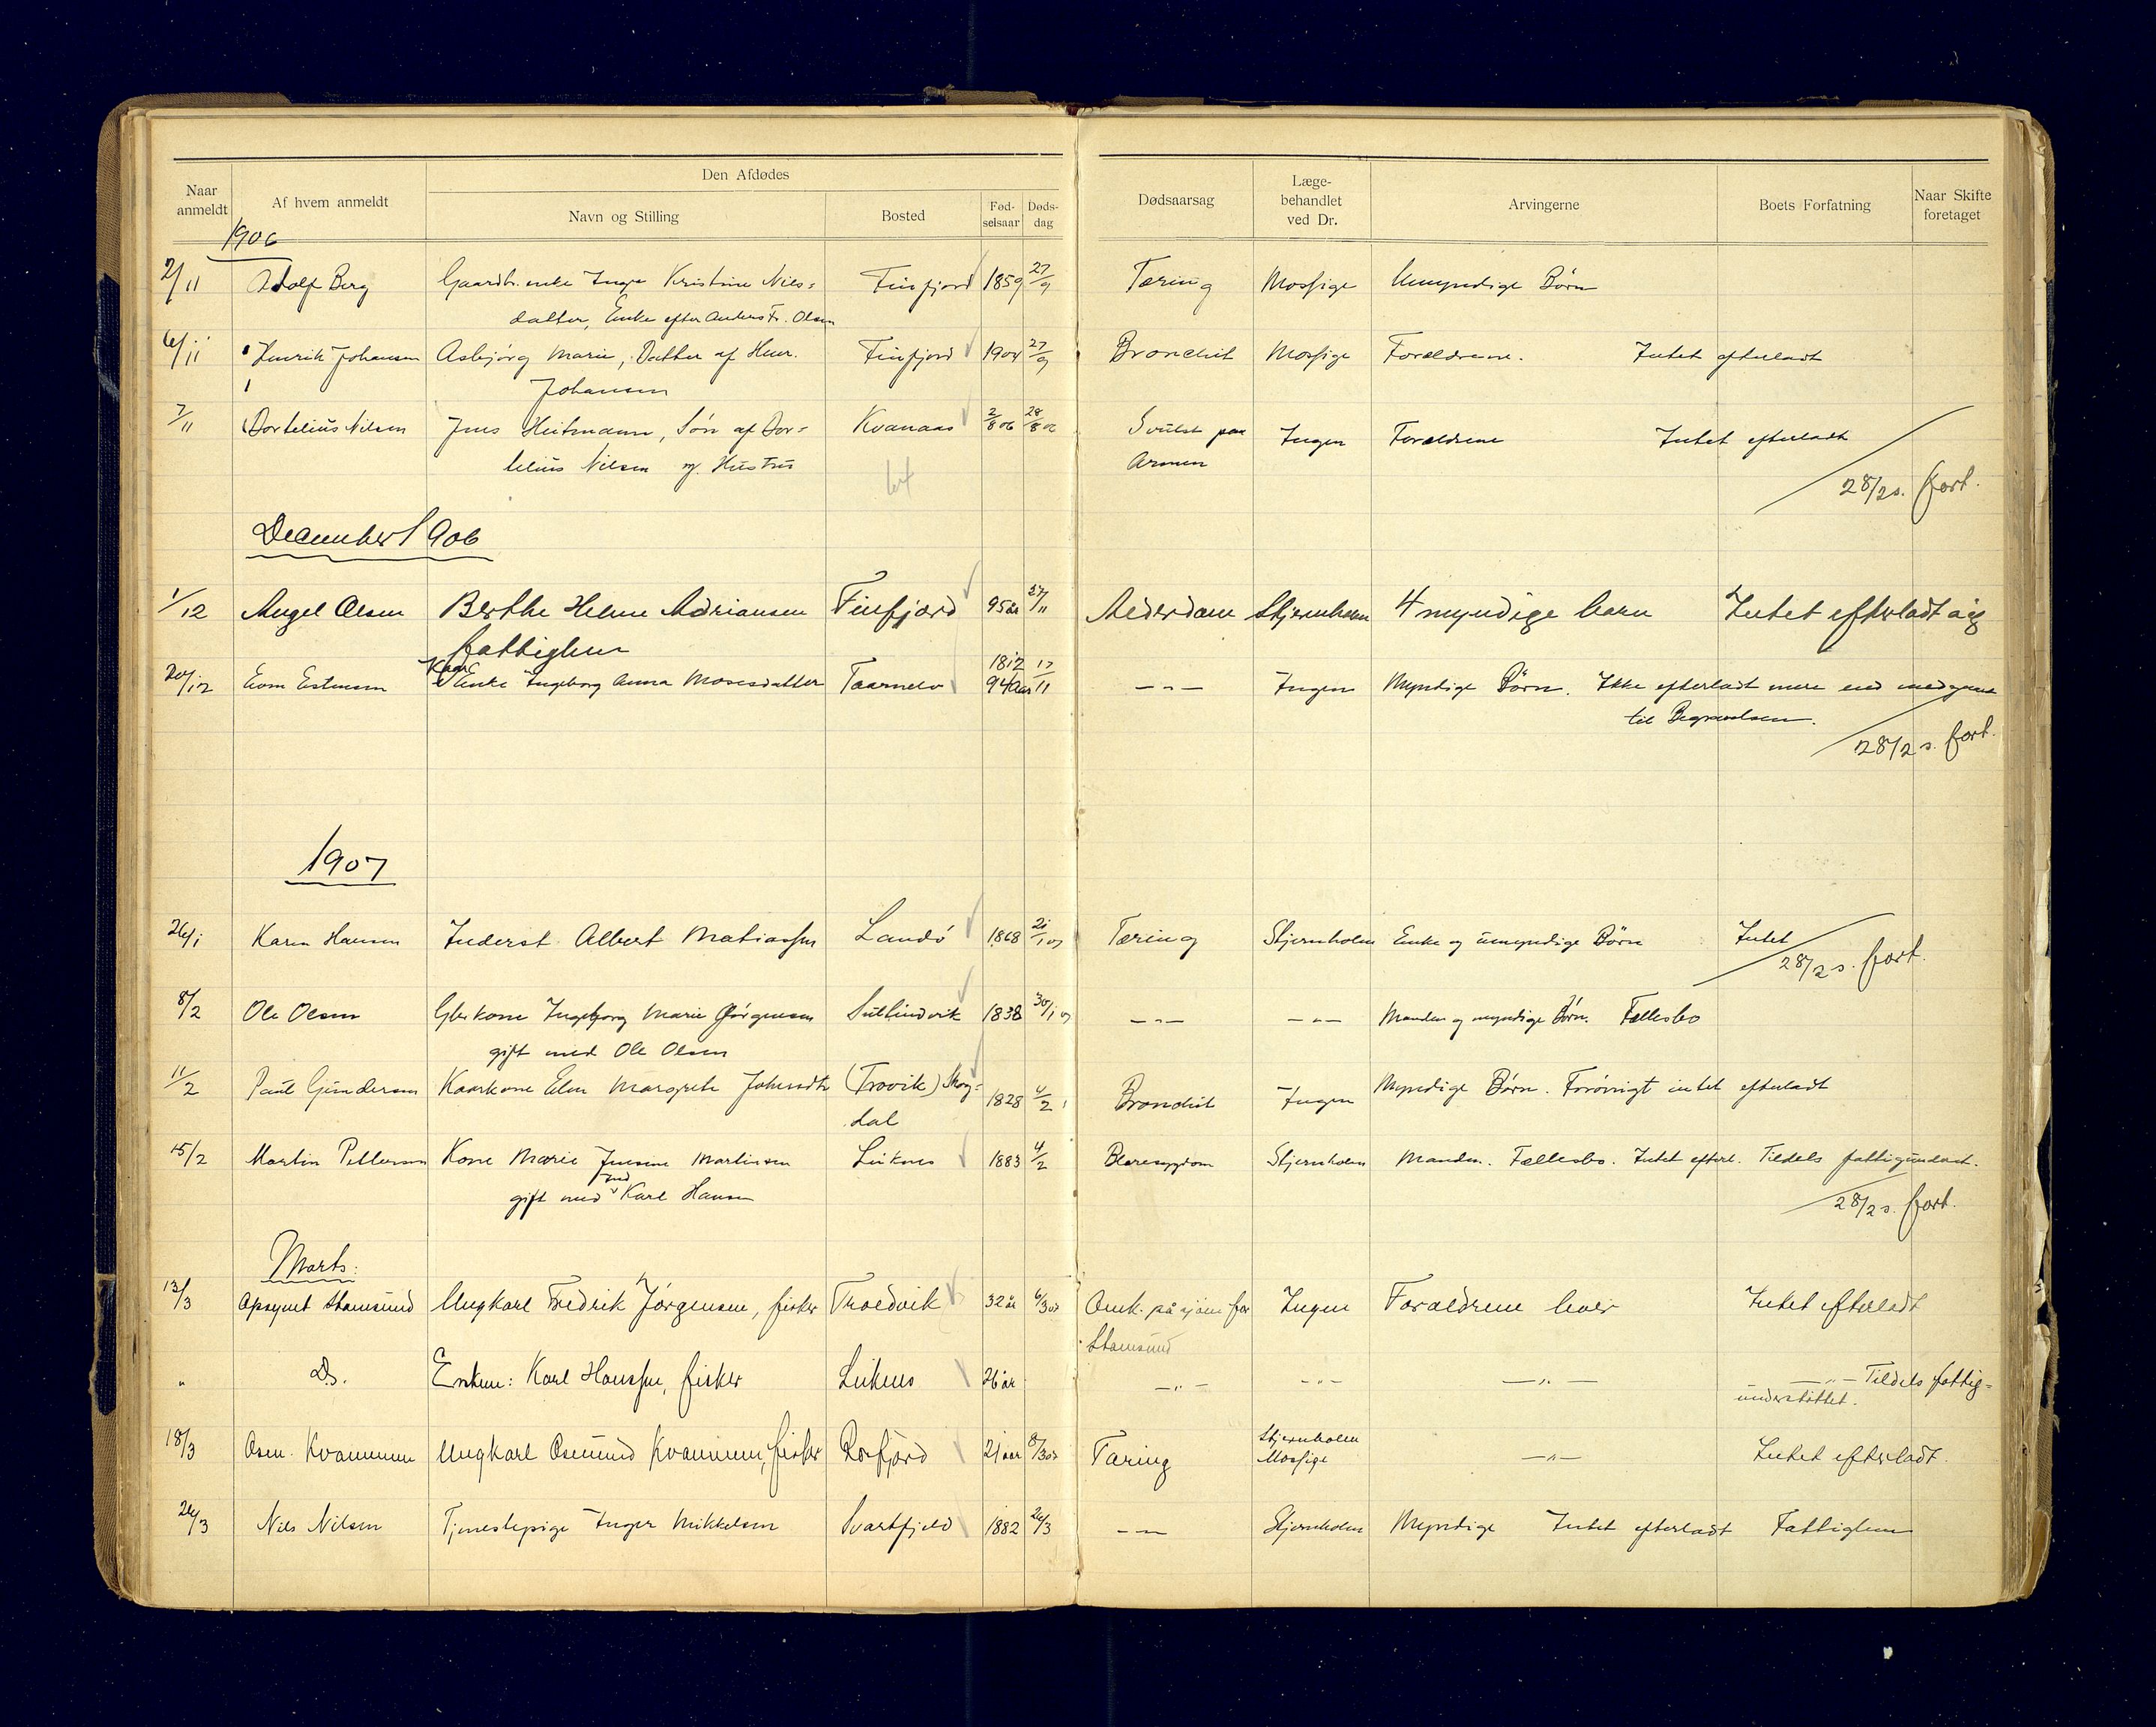 Den Afdødes
Naar anmeldt
Af hvem anmeldt
Navn og Stilling
Bosted
Fød-selsaar
Døds-dag
Dødsaarsag
Læge-behandlet ved Dr.
Arvingerne
Boets Forfatning
Naar Skifte foretaget
1906
2/11 Adolf Berg Gaardbr.enke Inga Kristine Nils= Finfjord 1859 27/9 Tæring Mossige Umyndige Børn
datter, Enke efter Anders Fr. Olsen
6/11 Henrik Johansen Asbjørg Marie, Datter af Henr. Finfjord 1904 27/9 Bronchit Mossige Forældrene. Intet efterladt
Johansen
7/11 Dortelius Nilsen Jens Heitmann, Søn af Dor= Kvanaas 2/8 06 28/8 06 Svulst paa Ingen Forældrene Intet efterladt
telius Nilsen og Hustru Armen
28/2 s. fort.
December 1906
1/12 Angel Olsen Berthe Helene Adriansen Finfjord 95 år 27/11 Alderdom Stjernholm 4 myndige barn Intet efterladt sig
fattiglem
20/12 Even Estensen Kaar Enke Ingeborg Anna Mosesdatter Taarnelv 1812 94 Aar 17/11 — " — Ingen Myndige Børn. Ikke efterladt mere end medgaar
til Begravelsen.
28/2 s. fort.
1907
26/1 Karen Hansen Inderst Albert Matiassen Landø 1868 21/1 07 Tæring Stjernholm Enke og umyndige Børn Intet
28/2 s. fort.
8/2 Ole Olsen Gbrkone Ingeborg Marie Jørgensen Sultindvik 1838 30/1 07 — " — — " — Manden og myndige Børn. Fællesbo
gift med Ole Olsen
11/2 Paul Gundersen Kaarkone Elen Margrete Johnsdtr (Trovik) Skog= 1828 4/2 Bronchit Ingen Myndige Børn. Forøvrigt intet efterladt
dal
15/2 Martin Pettersen Kone Marie Jensine Martinsen Liknes 1883 4/2 Blæresygdom Stjernholm Manden. Fællesbo. Intet efterl. Tildels fattigunderst.
gift med Karl Hansen
28/2 s. fort.
Marts:
13/3 Opsynet Stamsund Ungkarl Fredrik Jørgensen, fisker Troedvik 32 år 6/3 07 Omk. på sjøen for Ingen Forældrene lever Intet efterladt
Stamsund
" Ds. Enkem: Karl Hanssen, fisker Liknes 26 år — " — — " — — " — — " — Tildels fattig=
understøttet.
18/3 Osm. Kvammen Ungkarl Osmund Kvammen, fisker Rosfjord 21 aar 8/3 07 Tæring Stjernholm Mossige — " — Intet efterladt.
26/3 Nils Nilsen Tjenestepige Inger Mikkelsen Svartfjeld 1882 26/3 — " — Stjernholm Myndige Intet efterladt Fattiglem